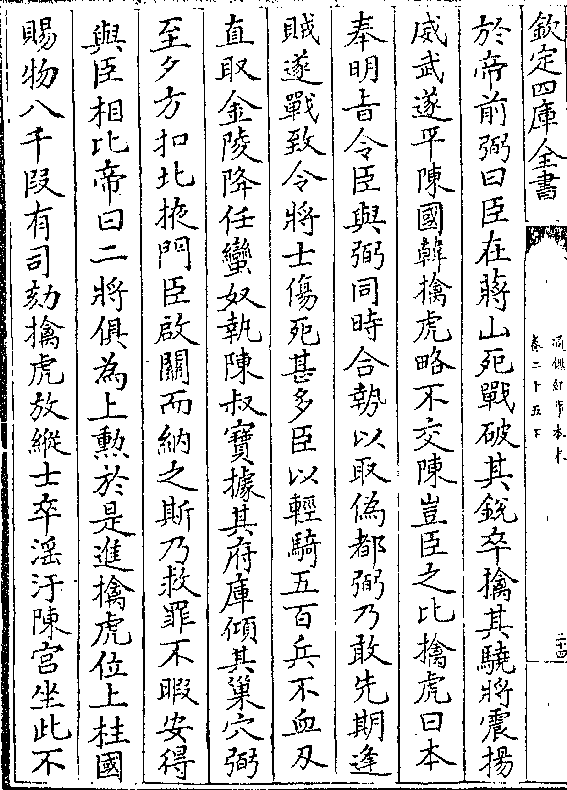 欽定四庫全書
通鑑紀事本末
卷二十五下
二十四
於帝前弼曰臣在蔣山死戰破其銳卒擒其驍將震揚
威武遂平陳國韓擒虎略不交陳豈臣之比擒虎曰本
奉明㫖令臣與弼同時合埶以取偽都弼乃敢先期逢
賊遂戰致令將士傷死甚多臣以輕騎五百兵不血刃
直取金陵降任蠻奴執陳叔寶據其府庫傾其巢穴弼
至夕方扣北掖門臣啟關而納之斯乃救罪不暇安得
與臣相比帝曰二將俱為上勲於是進擒虎位上柱國
賜物八千段有司劾擒虎放縱士卒淫汙陳宮坐此不